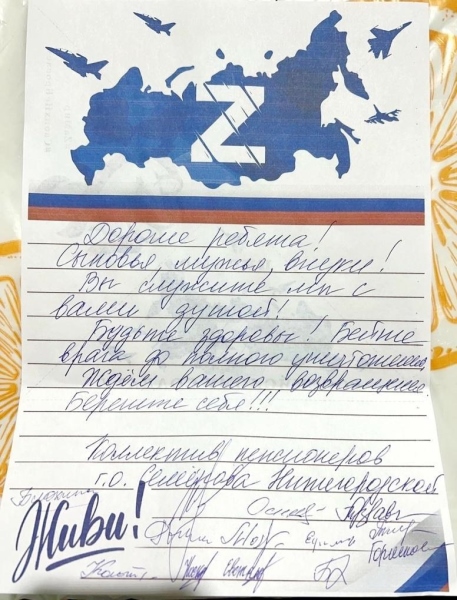 Z
Дорогие ребята!
Сыновья, мужья, внуки!
Вы служите мы с
вами душой!
Будьте здоровы! Бейте
врага до полного уничтожения,
Ждём вашего возвращения.
Берегите себя!!!
Коллектив пенсионеров
г.о. Семёнова Нижегородской
Живи!